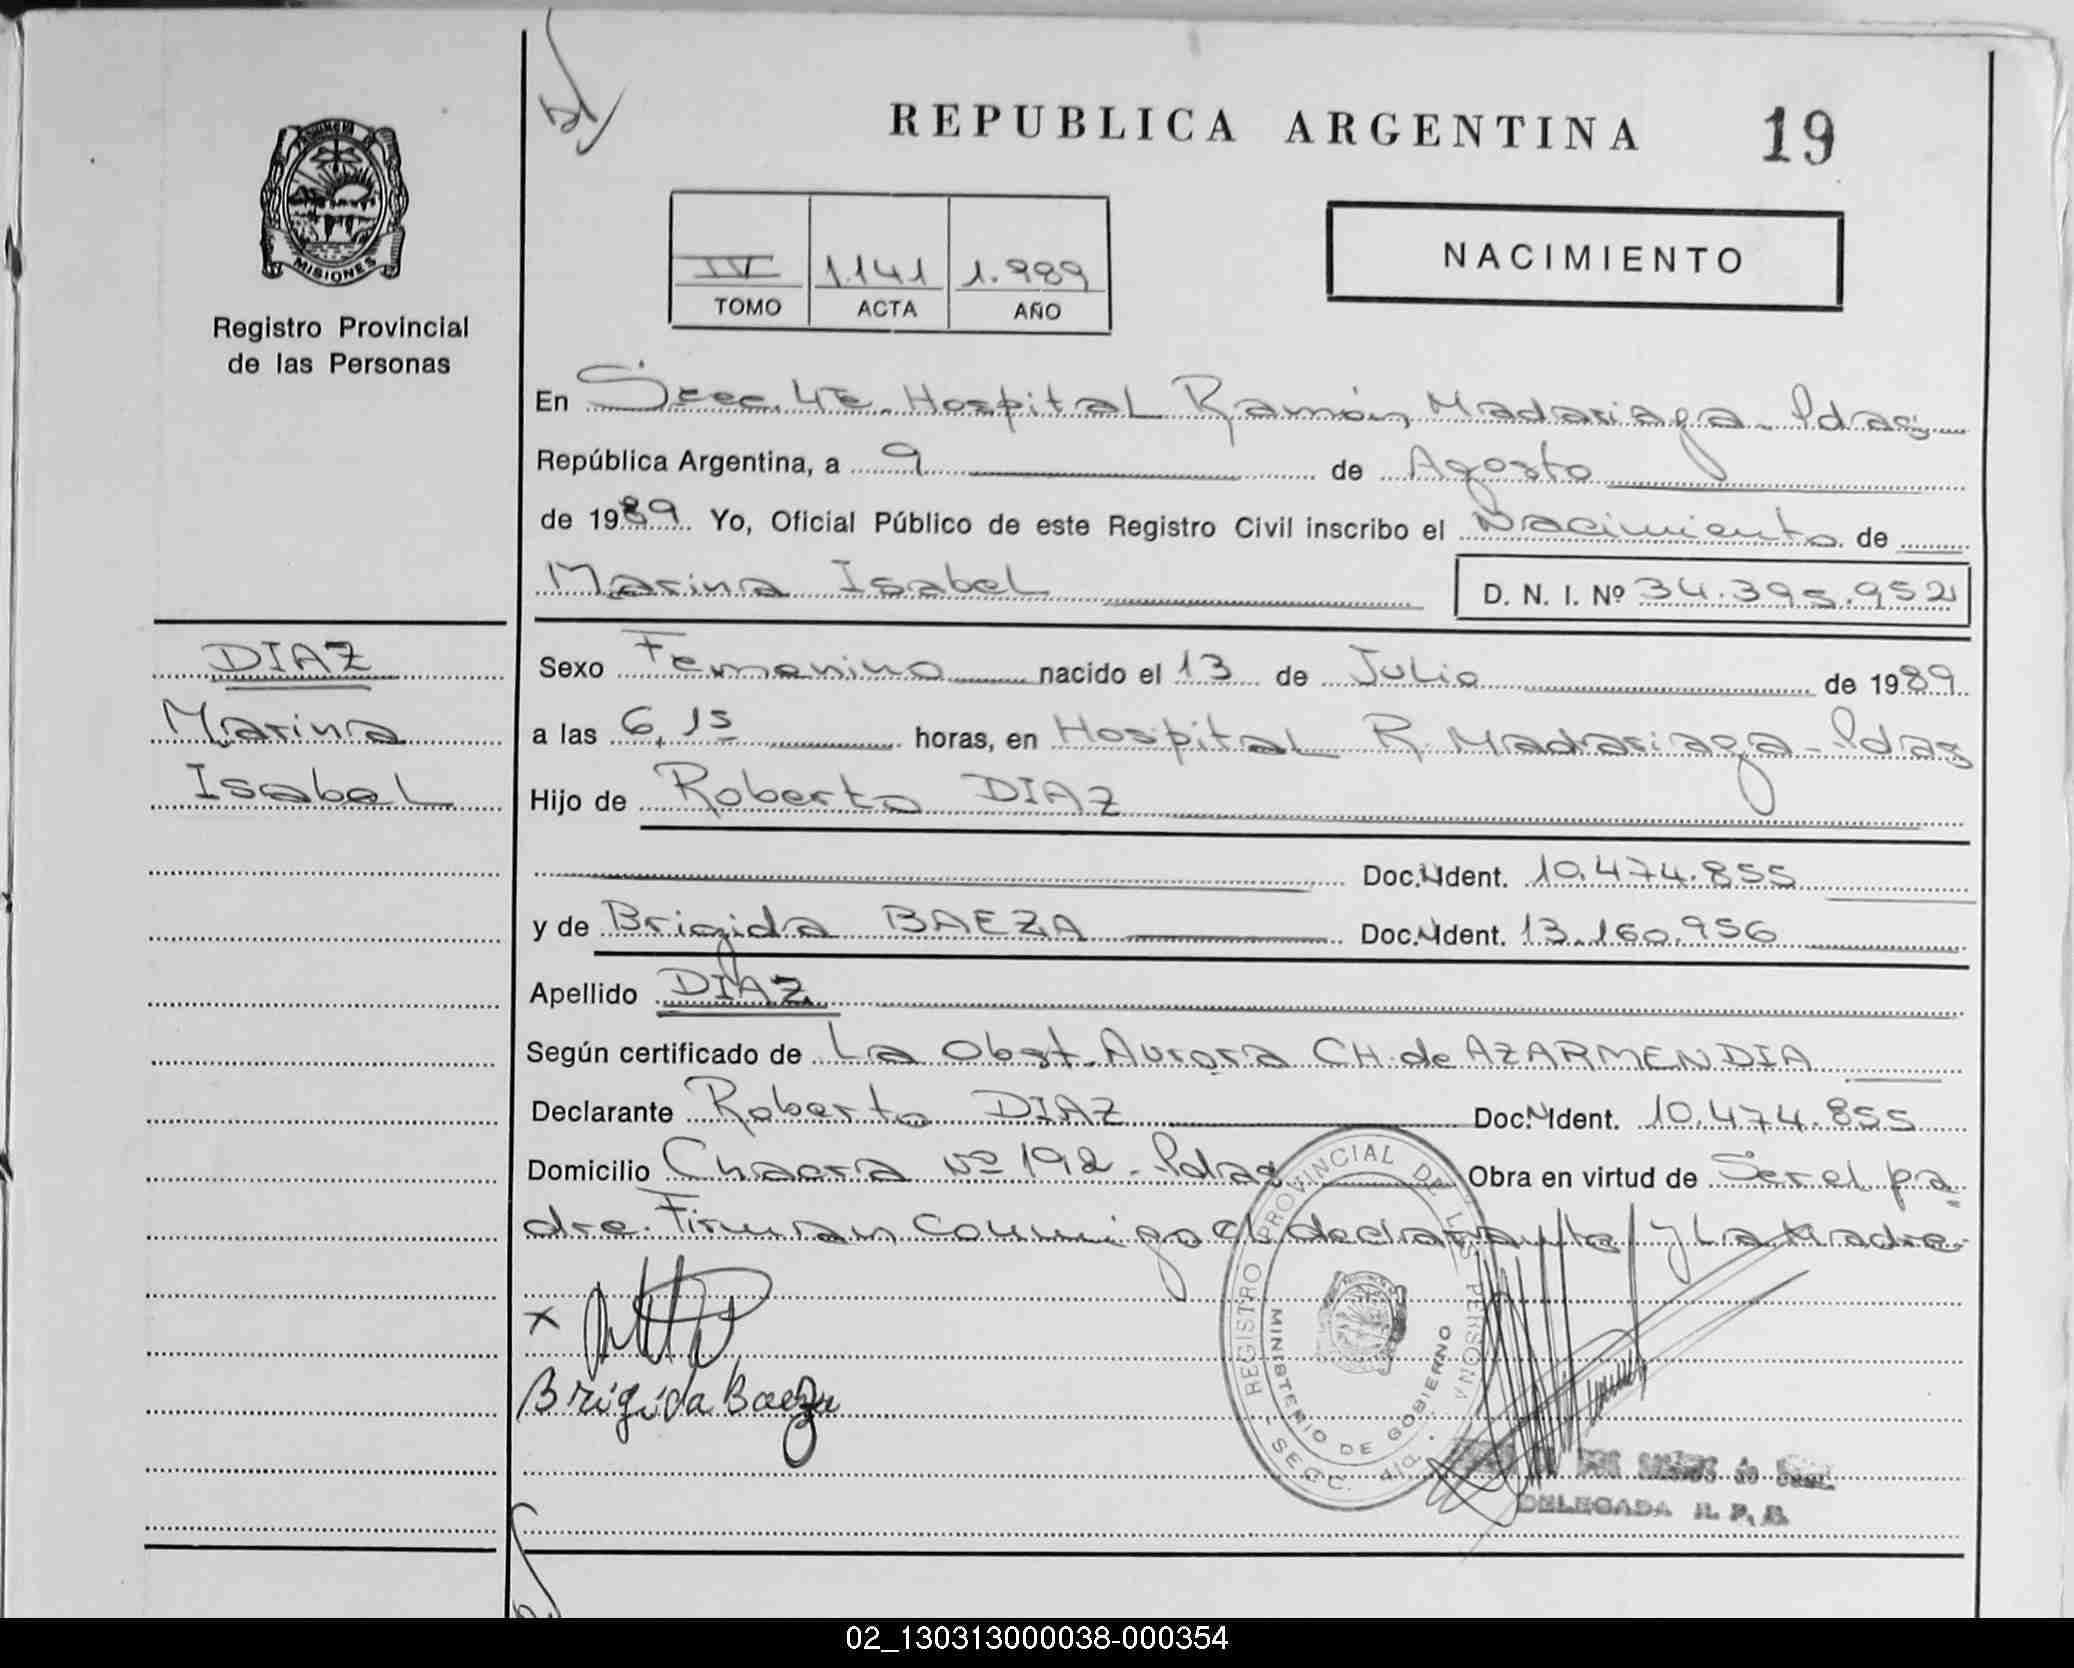 REPUBLICA ARGENTINA 19
PROVINCIA
MISIONES
Registro Provincial
de las Personas
IV 1.141 1.989
TOMO ACTA AÑO
NACIMIENTO
En Secc. 4ta. Hospital Ramón Madariaga - Pdas
República Argentina, a 9 de Agosto
de 1989. Yo, Oficial Público de este Registro Civil inscribo el Nacimiento de
Marina Isabel D. N. I. Nº 34.395.952
DIAZ
Marina
Isabel
Sexo Femenino nacido el 13 de Julio de 1989
a las 6,15 horas, en Hospital R. Madariaga - Pdas
Hijo de Roberto DIAZ
Doc. N Ident. 10.474.855
y de Brigida BAEZA Doc. N Ident. 13.160.956
Apellido DIAZ
Según certificado de La Obst. Aurora CH. de AZARMENDIA
Declarante Roberto DIAZ Doc. N Ident. 10.474.855
Domicilio Chacra Nº 192 - Pdas Obra en virtud de Ser el pa-
dre. Firman conmigo el declarante y La Madre.
x
Brigida Baeza
REGISTRO PROVINCIAL DE LAS PERSONAS
MINISTERIO DE GOBIERNO
- SECC. 4ta. -
DELEGADA R. P. P.
02_130313000038-000354